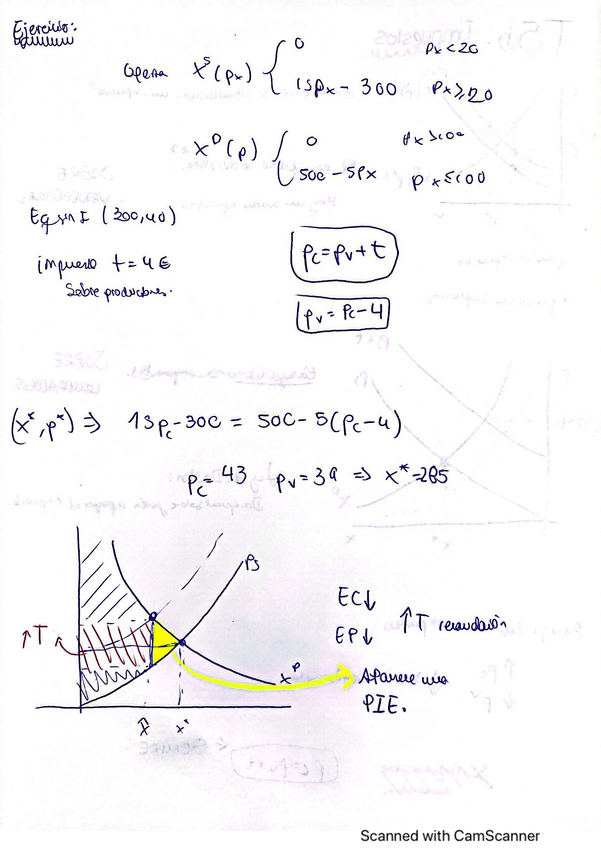 Ejercicio:
Oferta X^S(px) { 0 px < 20
15px - 300 px ≥ 20
X^D(p) { 0 px > 100
500 - 5px px ≤ 100
Eq sin I (300, 40)
impuesto t = 4 €
Sobre productores.
pc = pv + t
pv = pc - 4
(x*, p*) ⇒ 15pc - 300 = 500 - 5(pc - 4)
pc = 43 pv = 39 ⇒ x* = 285
↑T
ps
x^D
x̂ x*
EC↓
EP↓
↑T recaudación
Aparece una
PIE.
Scanned with CamScanner